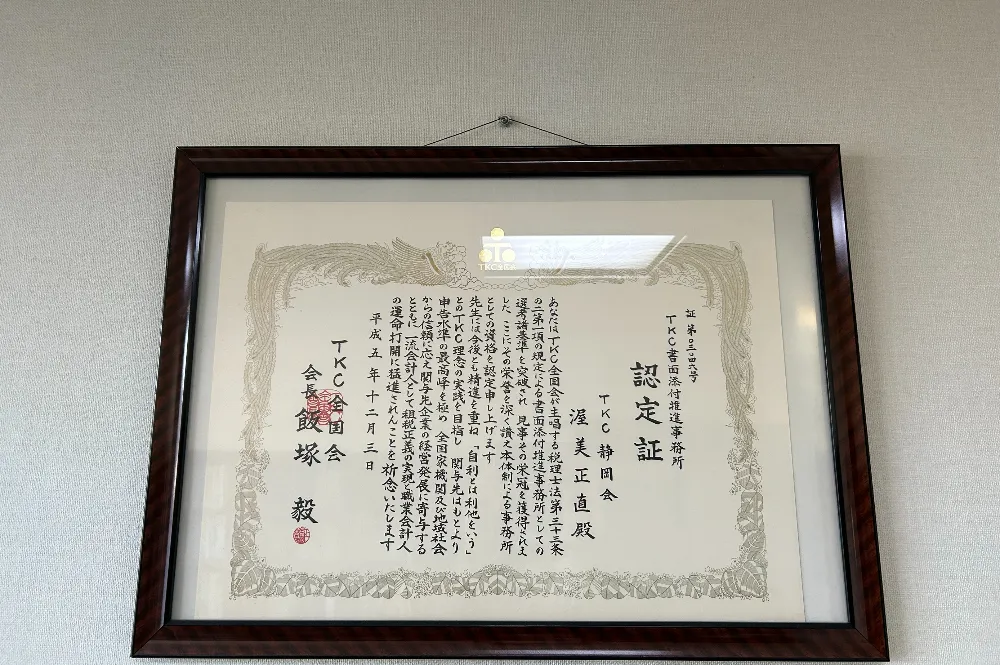 証 第〇三〇四六号
TKC書面添付推進事務所
認定証
TKC 静岡会
渥美正直殿
あなたはTKC全国会が主唱する税理士法第三十三条
の二第一項の規定による書面添付推進事務所としての
選考諸基準を突破され 見事その栄冠を獲得されま
した ここにその栄誉を深く讃え本体制による事務所
としての資格を認定申し上げます
先生には今後とも精進を重ね「自利とは利他をいう」
とのTKC理念の実践を目指し 関与先はもとより
申告水準の最高峰を極め 全国家機関及び地域社会
からの信頼に応え関与先企業の経営発展に寄与する
とともに 一流会計人として租税正義の実現と職業会計人
の運命打開に猛進されんことを祈念いたします
平成五年十二月三日
TKC全国会
会長 飯塚 毅